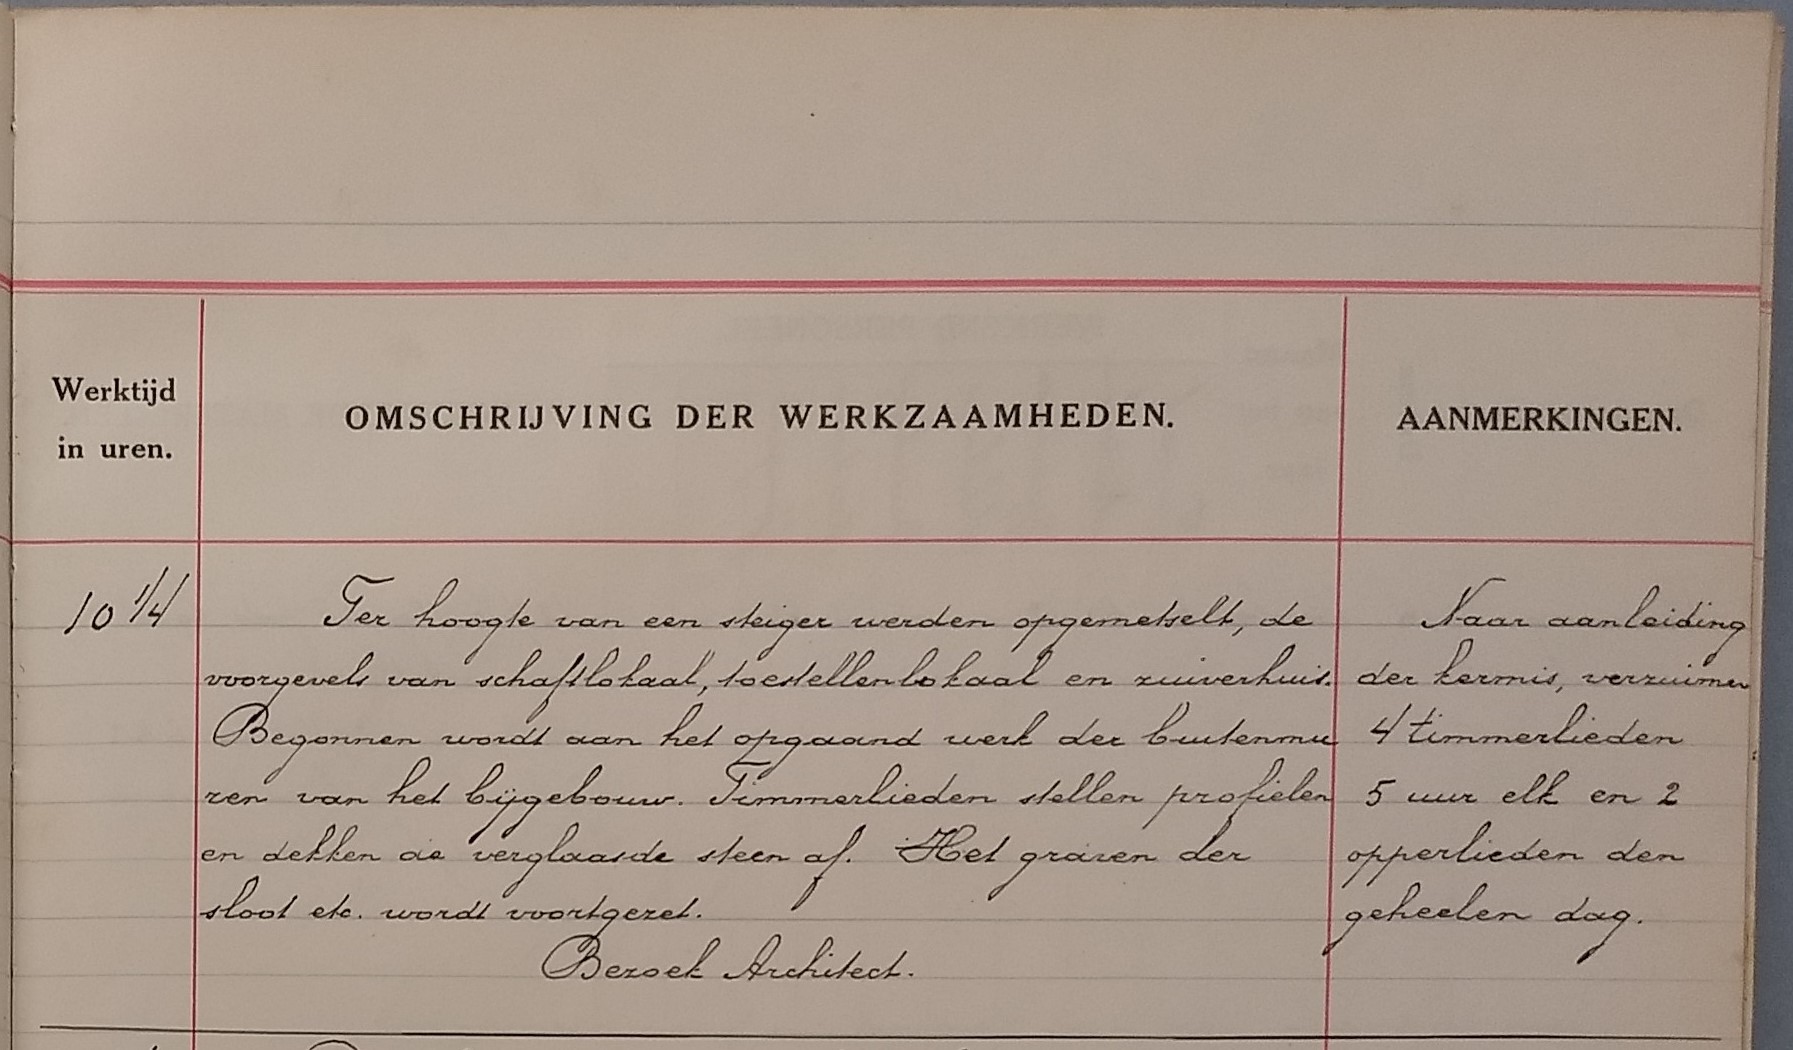 Werktijd
in uren.
OMSCHRIJVING DER WERKZAAMHEDEN.
AANMERKINGEN.
10 1/4
Ter hoogte van een steiger werden opgemetselt, de
voorgevels van schaftlokaal, toestellenlokaal en zuiverhuis.
Begonnen wordt aan het opgaand werk der buitenmu
ren van het bijgebouw. Timmerlieden stellen profielen
en dekken de verglaasde steen af. Het graven der
sloot etc. wordt voortgezet.
Bezoek Architect.
Naar aanleiding
der kermis, verzuimen
4 timmerlieden
5 uur elk en 2
opperlieden den
geheelen dag.